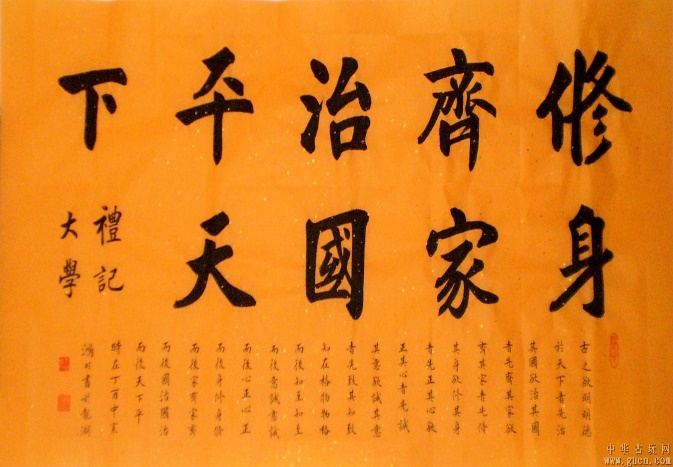 修身
齊家
治國
平天
下
禮記
大學
古之欲明明德
於天下者先治
其國欲治其國
者先齊其家欲
齊其家者先修
其身欲修其身
者先正其心欲
正其心者先誠
其意欲誠其意
者先致其知致
知在格物物格
而後知至知至
而後意誠意誠
而後心正心正
而後身修身修
而後家齊家齊
而後國治國治
而後天下平
時在丁酉中秋
書於龍湖
中华古玩网
www.gucn.com